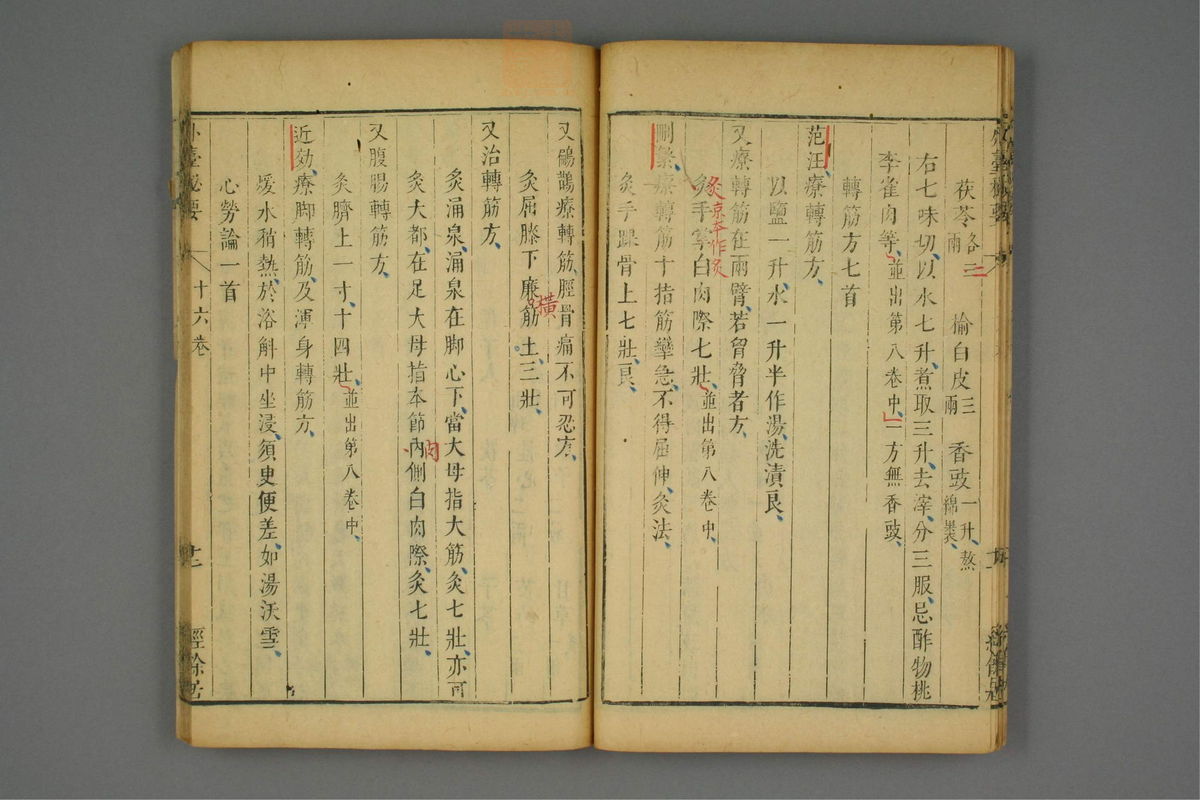 茯苓各三兩 榆白皮三兩 香豉一升熬綿裹
右七味切以水七升煮取三升去滓分三服忌酢物桃
李雀肉等並出第八卷中一方無香豉
轉筋方七首
范汪療轉筋方
以鹽一升水一升半作湯洗漬良
又療轉筋在兩臂若胷脅者方
灸手掌白肉際七壯並出第八卷中
灸京本作炙
刪繁療轉筋十指筋攣急不得屈伸灸法
灸手踝骨上七壯良
又鷁鵲療轉筋脛骨痛不可忍方
灸屈膝下廉筋上三壯
橫
又治轉筋方
灸涌泉涌泉在脚心下當大母指大筋灸七壯亦可
灸大都在足大母指本節內側白肉際灸七壯
肉
又腹腸轉筋方
灸臍上一寸十四壯並出第八卷中
近効療脚轉筋及渾身轉筋方
煖水稍熱於浴斛中坐浸須臾便差如湯沃雪
心勞論一首
外臺秘要 十六卷 十二 經餘居